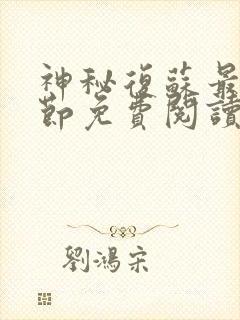 神秘復蘇最
節免費閱讀
劉鴻宋